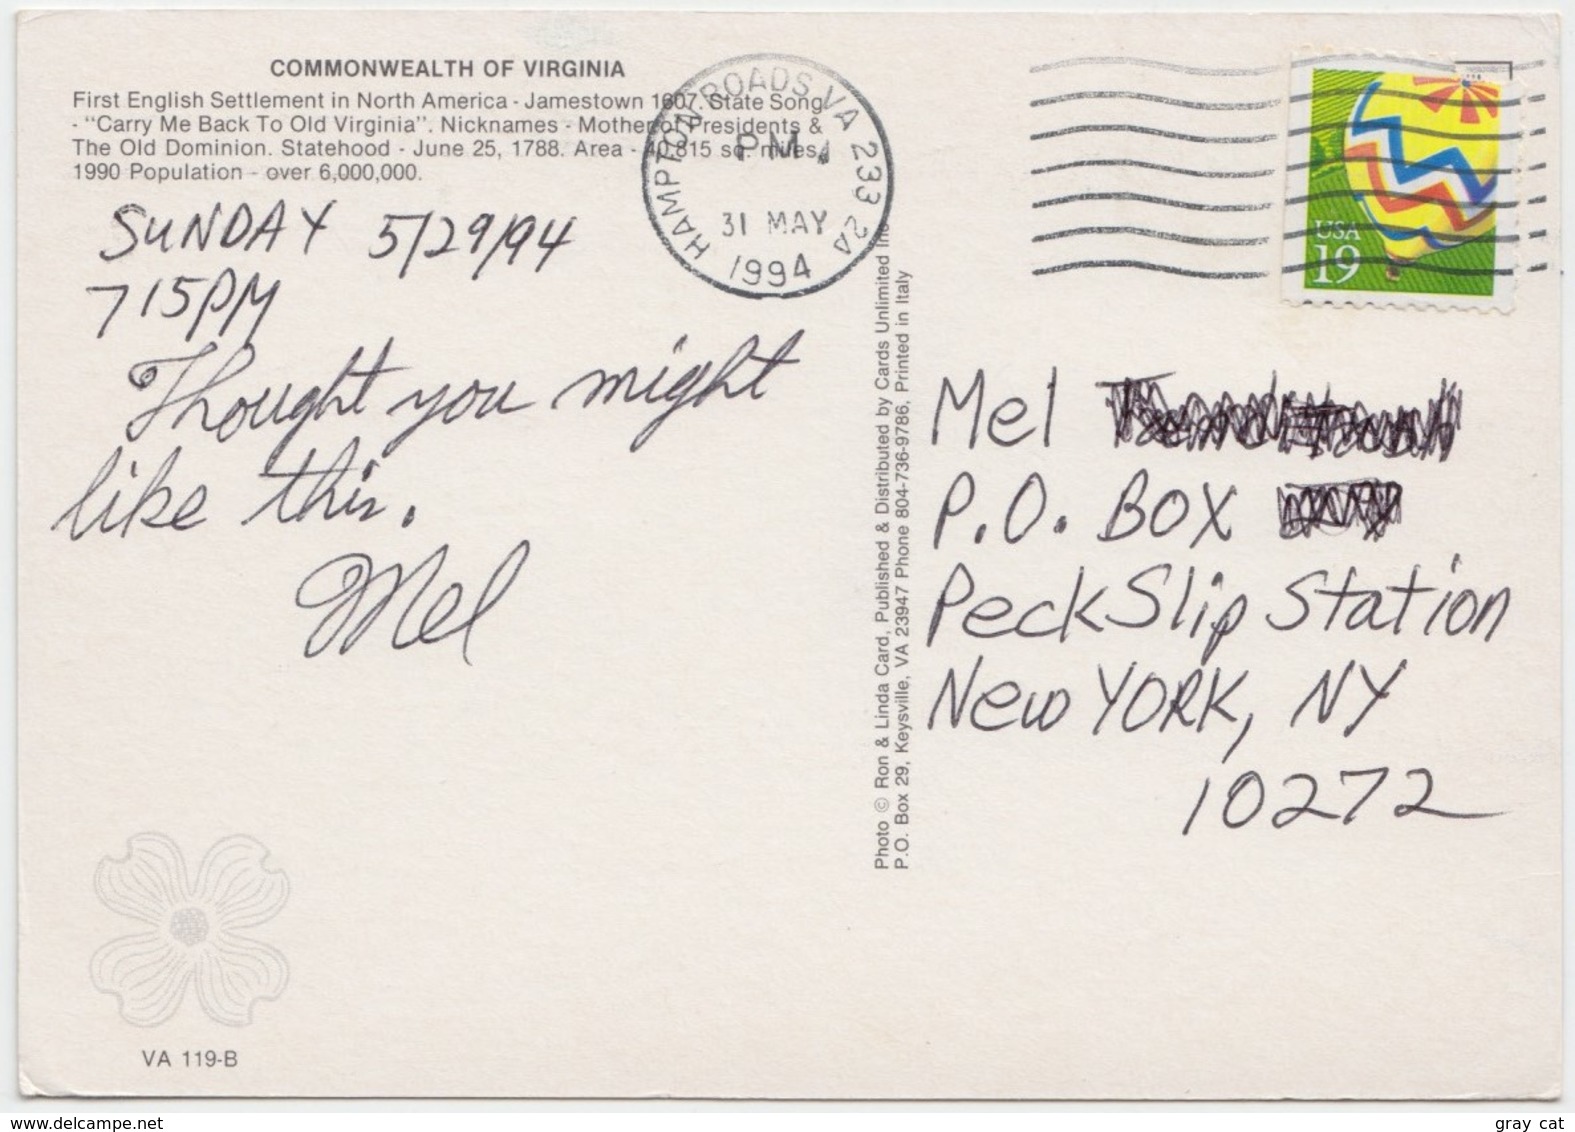 COMMONWEALTH OF VIRGINIA
First English Settlement in North America - Jamestown 1607. State Song
- "Carry Me Back To Old Virginia". Nicknames - Mother of Presidents &
The Old Dominion. Statehood - June 25, 1788. Area - 40,815 sq. miles.
1990 Population - over 6,000,000.
SUNDAY 5/29/94
715PM
Thought you might
like this.
Mel
VA 119-B
HAMPTON ROADS VA 233 2A
PM
31 MAY
1994
Photo © Ron & Linda Card, Published & Distributed by Cards Unlimited Inc
P.O. Box 29, Keysville, VA 23947 Phone 804-736-9786, Printed in Italy
USA
19
Mel
P.O. BOX
Peck Slip Station
New YORK, NY
10272
www.delcampe.net
gray cat